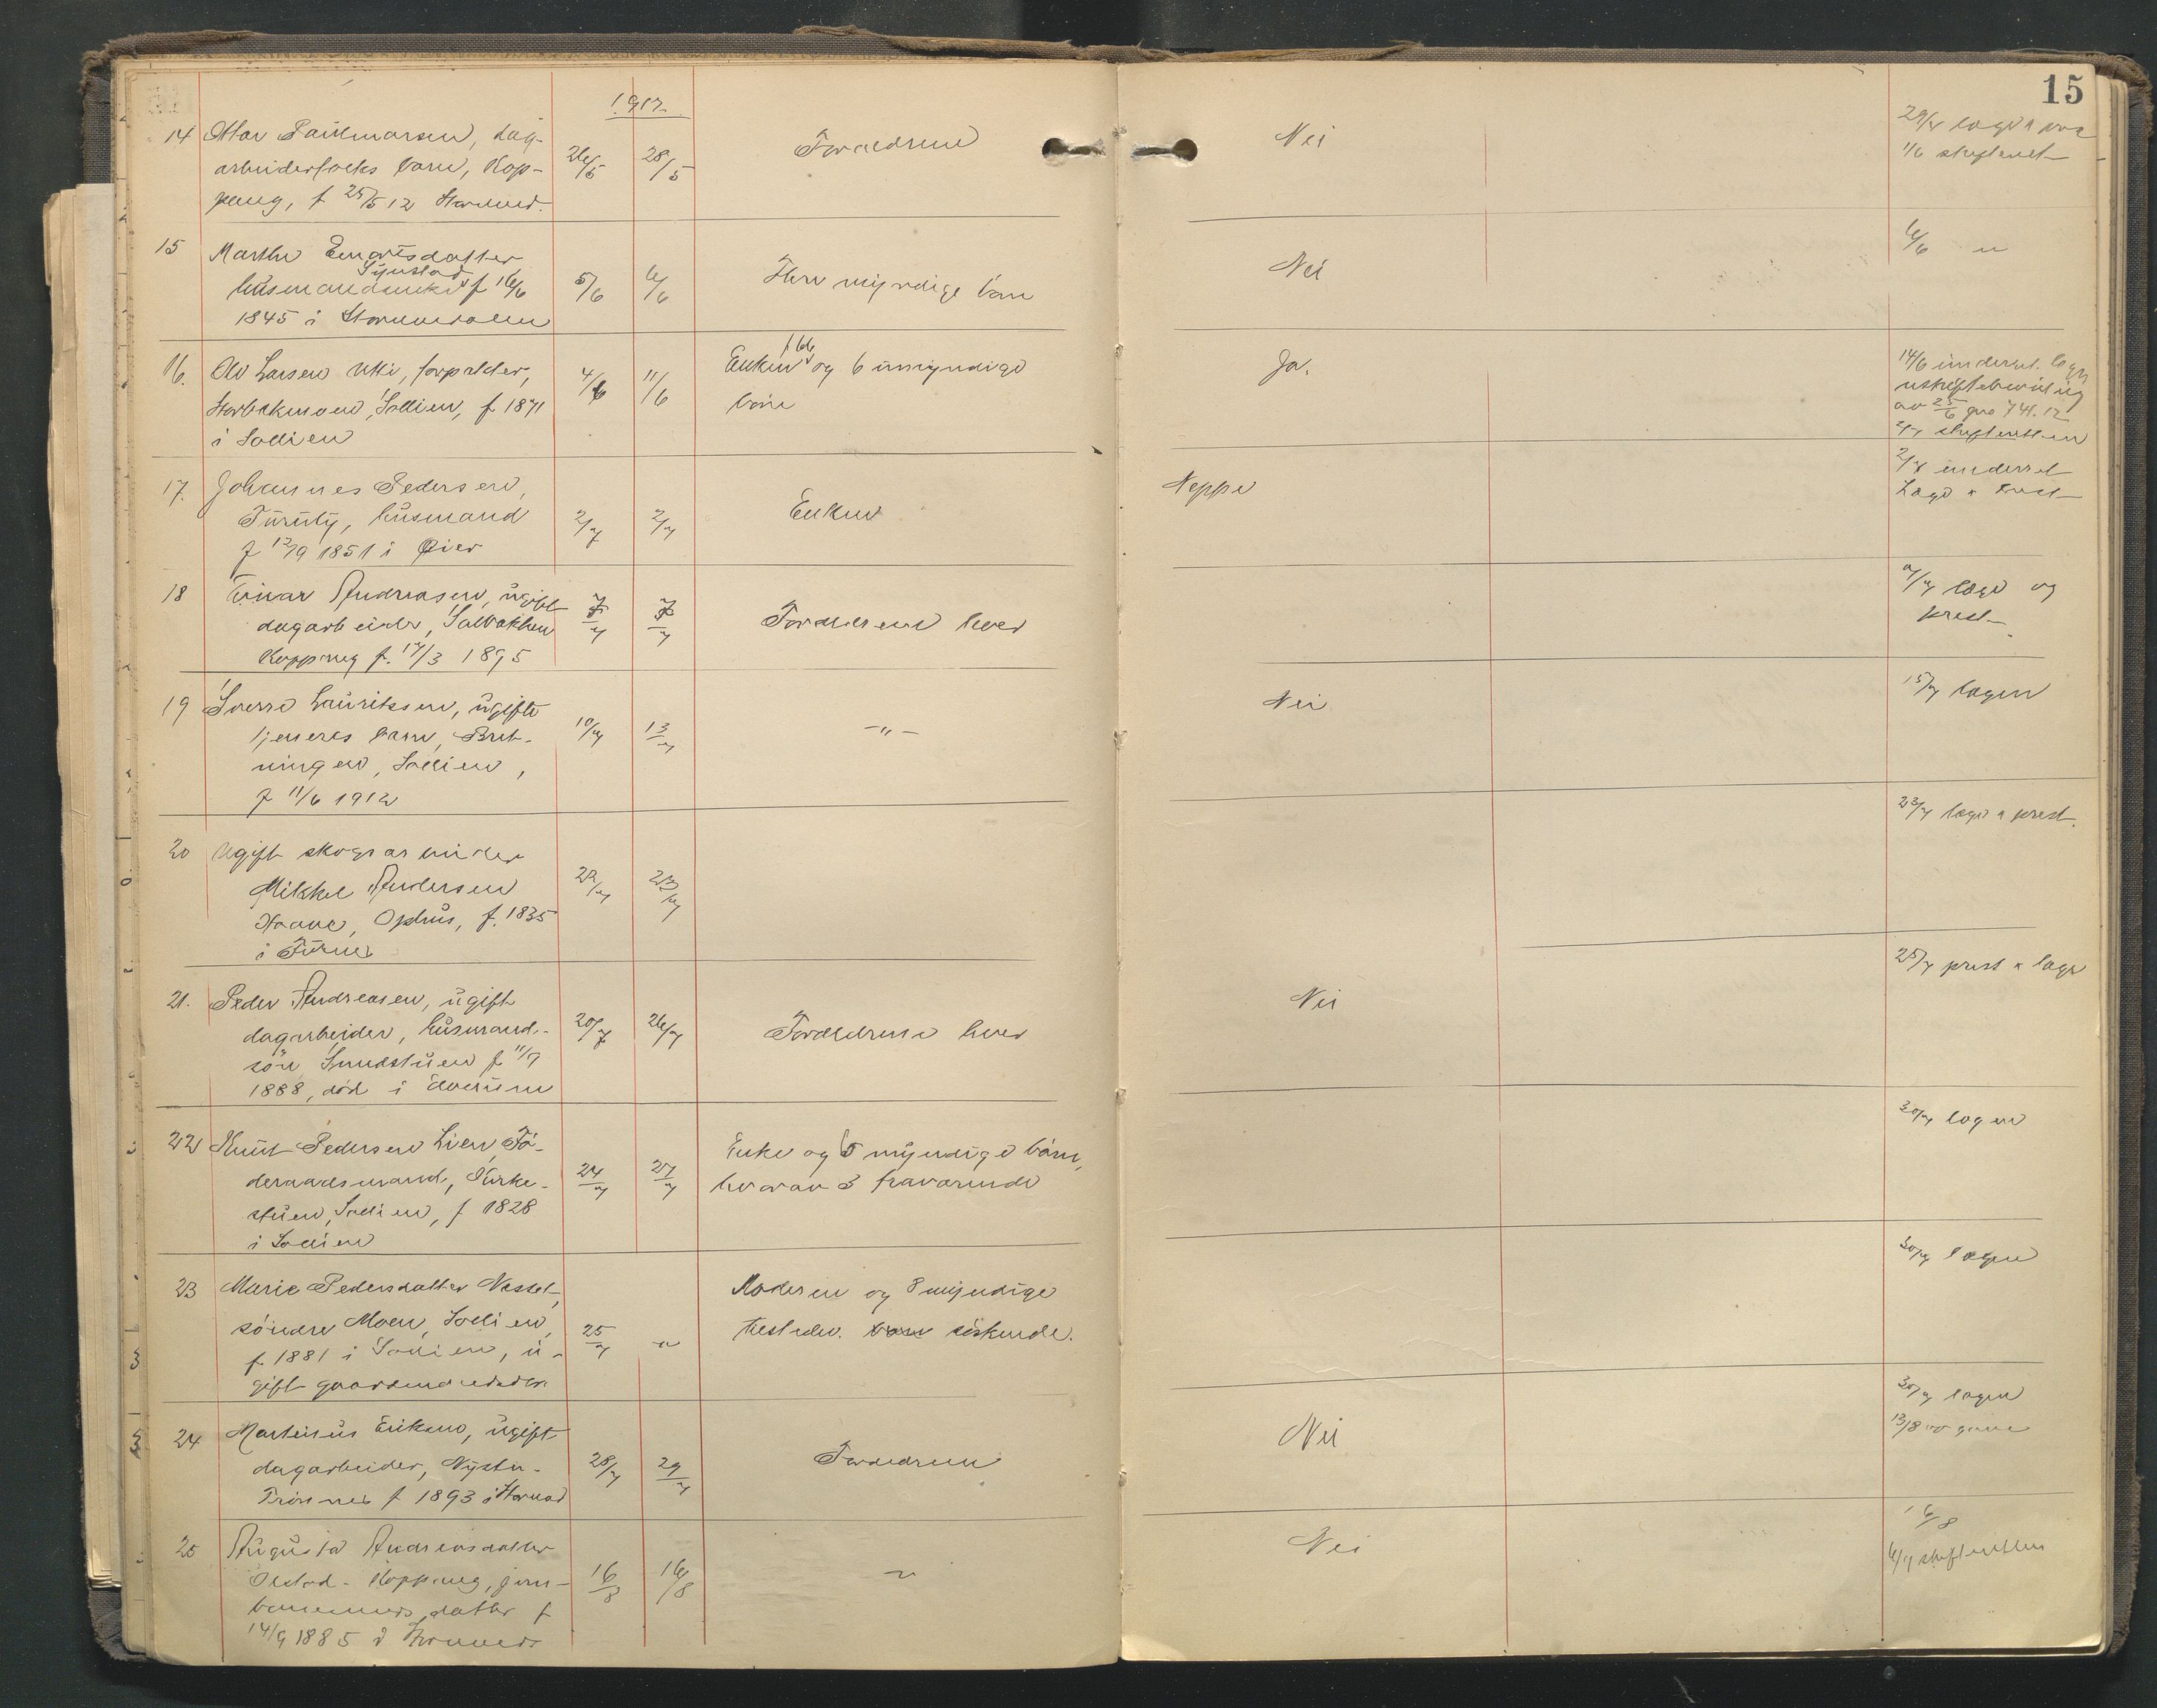 15
1912
14 Ottar Paulmarsen, dag-
arbeiderfolks barn, Kop-
pang, f 25/5 12 Storelved.
26/5 28/5 Forældrene Nei
29/5 læge & prest
1/6 skifteret
15 Marthe Engretsdatter
husmandsenke f 16/6
1845 i Storelvedalen
5/6 6/6 Flere myndige barn Nei
6/6 "
16. Ole Larsen Utti, forpakter,
Storbækmoen, Sollien, f 1871
i Sollien
4/6 11/6 Enken f 66 og 6 umyndige
barn
Ja.
14/6 underret. lægen
uskiftebevilling
av 25/6 gno 741.12
skifteretten
17. Johannes Pedersen,
husmand
f 12/9 1851 i Øier
2/7 2/7 Enken Neppe
2/7 underret
Læge & prest
18 Einar Andreasen, ugift
dagarbeider, Solbakken
Koppang f. 17/3 1895
7/7 7/7 Forældrene lever
9/7 læge og
prest
19 Sverre Lauritsen, ugifte
tjeneres barn, Bret-
ningen, Sollien,
f 11/6 1912
10/7 13/7 -"- Nei
15/7 lægen
20 Ugift skogsarbeider
Mikkel Andersen
Haave, Ophus, f. 1835
i Furnes
22/7 23/7
23/7 læge & prest.
21. Peder Andreasen, ugift
dagarbeider, husmand-
søn, Sundstuen f 11/7
1888, død i Elverum
20/7 26/7 Forældrene lever Nei
25/7 prest & læge
22 Knut Pedersen Lien, Fø-
deraadsmand, Kirke-
stuen, Sollien, f 1828
i Sollien
24/7 27/7 Enke og 5 myndige barn,
hvorav 3 fraværende
30/7 lægen
23 Marie Pedersdatter Nesset,
søndre Moen, Sollien,
f. 1881 i Sollien, u-
gift gaardmandsdatter
25/7 " Moderen og 8 myndige
tilstedev. barn søskende.
30/7 lægen
24 Martinus Eriksen, ugift
dagarbeider, Nystu-
Trønnes f 1893 i Storelvd
28/7 29/7 Forældrene Nei
30/7 lægen
13/8
25 Augusta Andreasdatter
Koppang, jern-
banemands datter f
14/9 1885 i Storelved.
16/8 16/8 " Nei
16/8
6/9 skifteretten